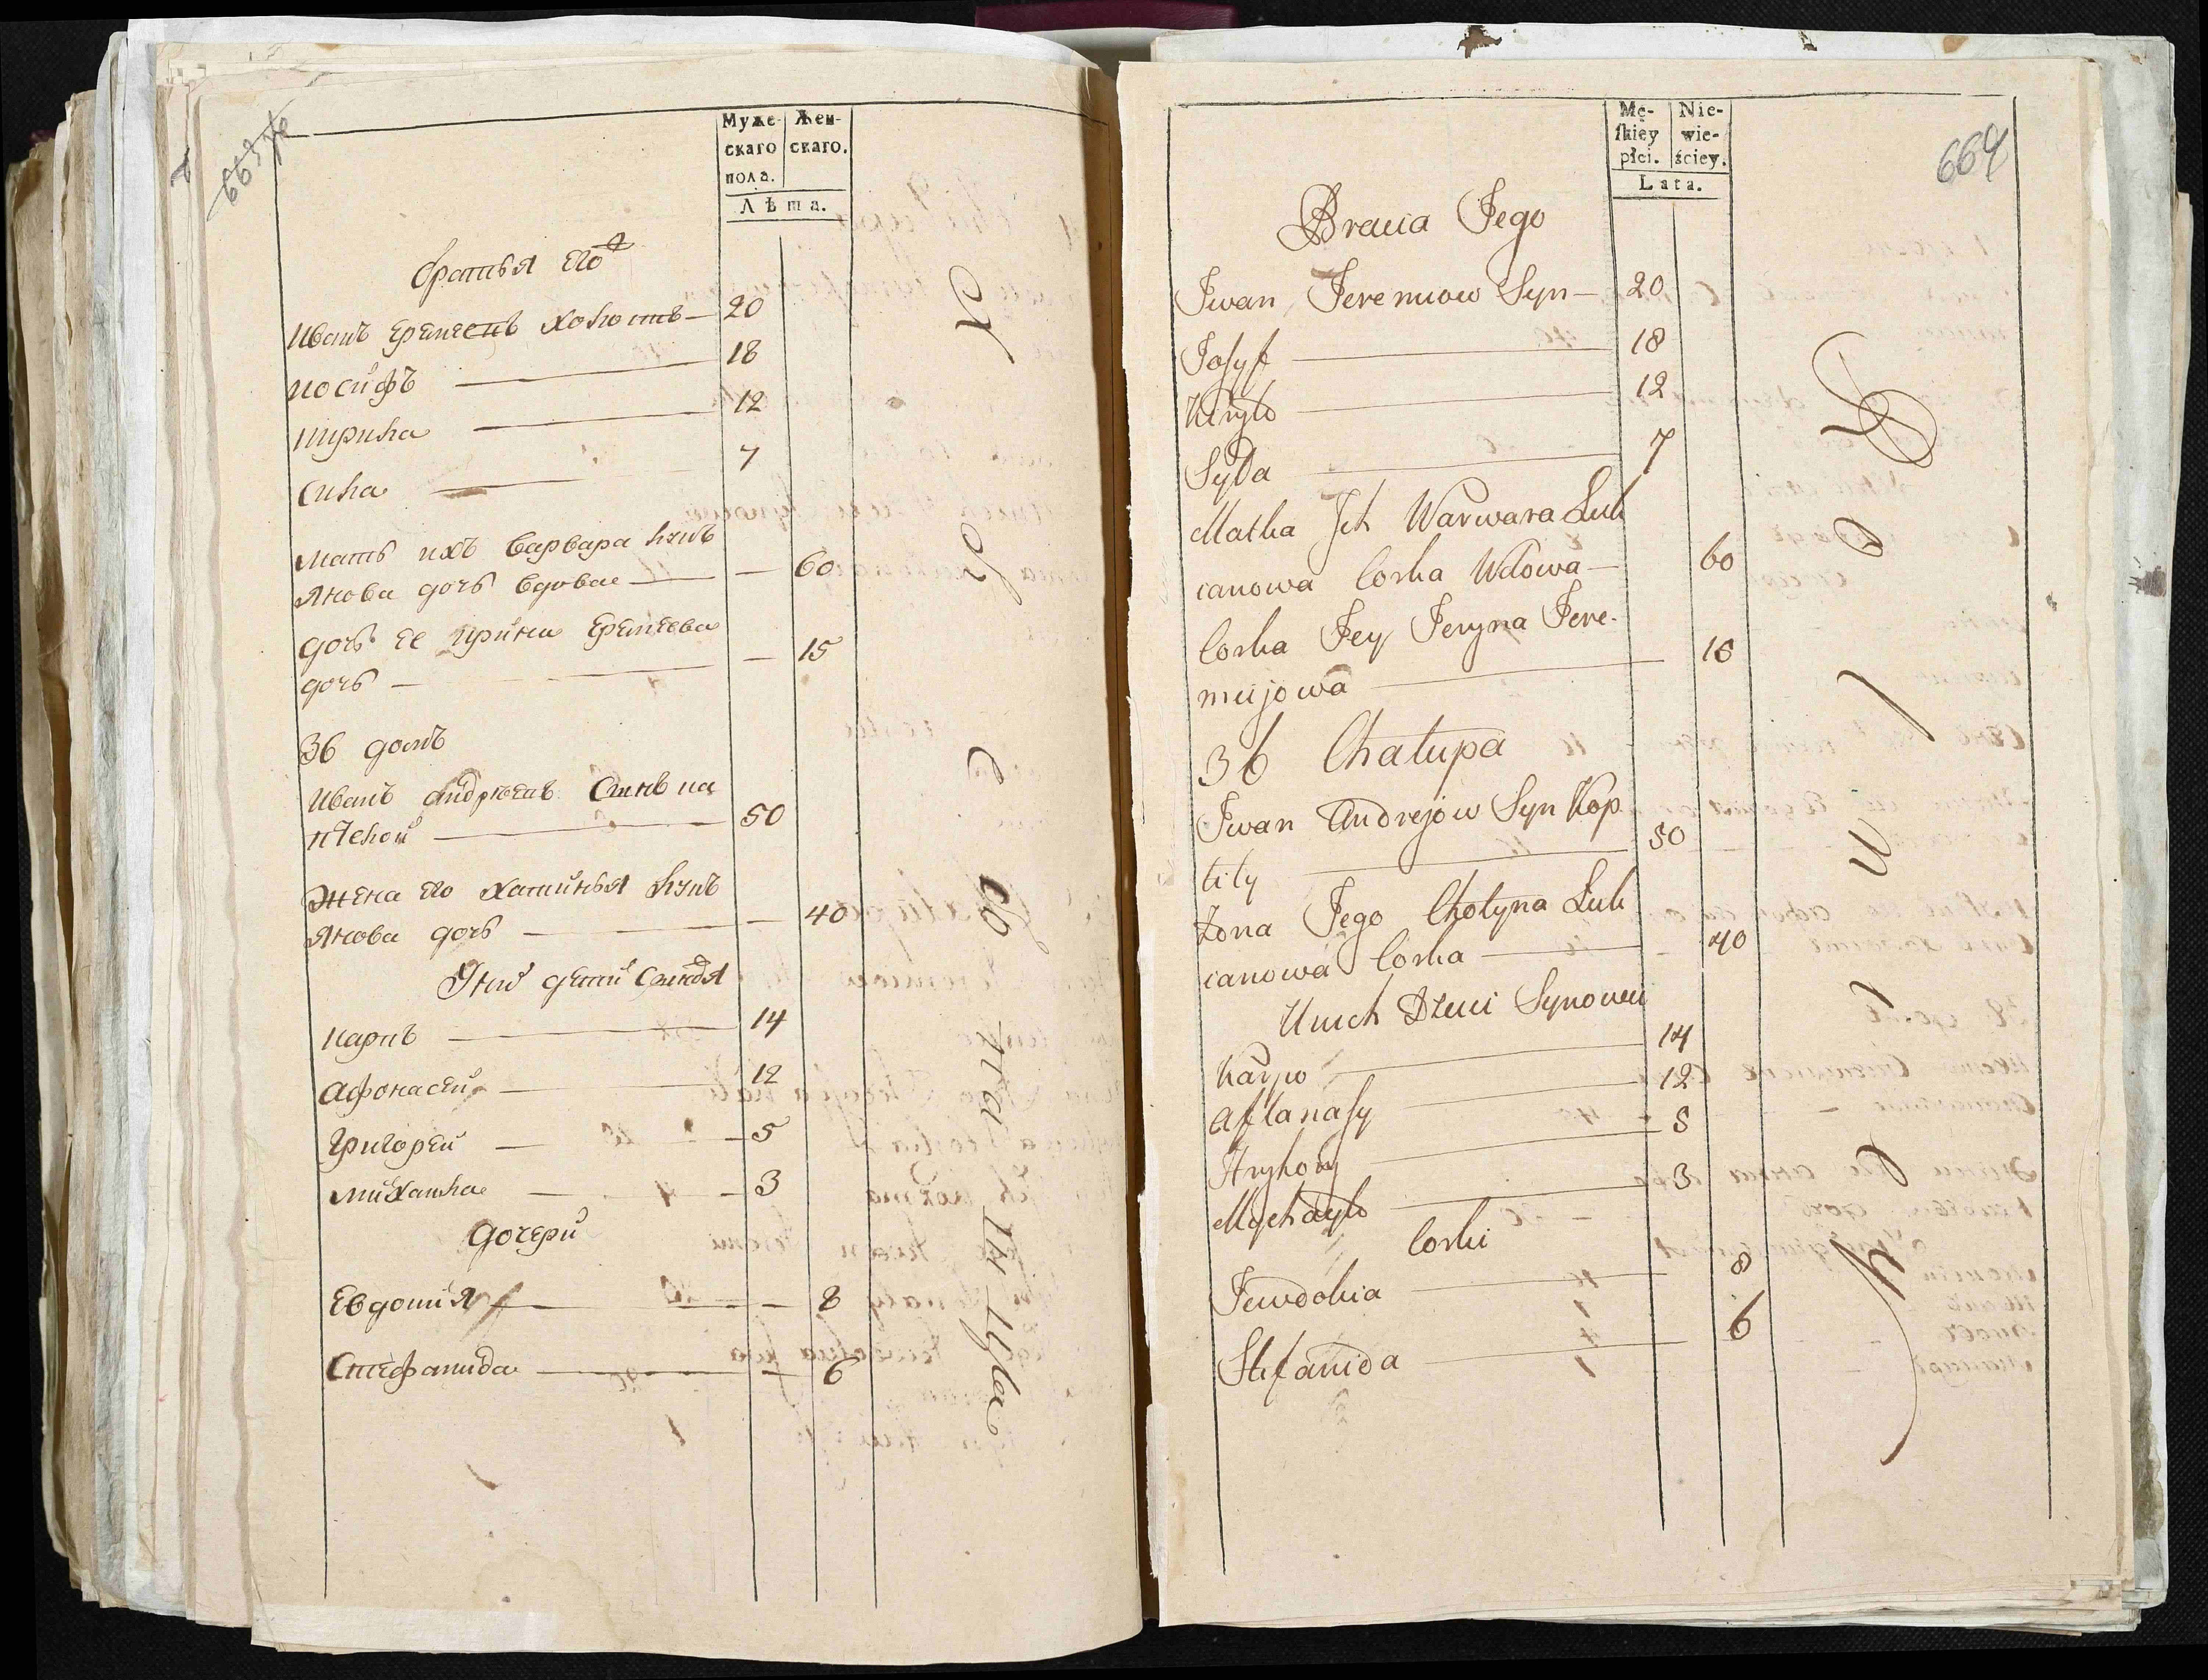 Муже-
скаго
пола.
Жен-
скаго.
Лѣта.
братья его
Иванъ Еремеевъ холостъ — 20
Иосифъ — 18
Кирила — 12
Сила — 7
мать ихъ варвара лукъ
янова дочь вдова — 60
дочь ее ирина Еремеева
дочь — 15
36 домъ
Иванъ андреевъ Сынъ
50
жена его хатинья лукъ
янова дочь — 40
У нихъ дети Сыновья
карпъ — 14
афонасеи — 12
григореи — 5
михаила — 3
дочери
Евдокия — 8
Стефанида — 6
664
Mę-
skiey
płci.
Nie-
wie-
ściey.
Lata.
Bracia Jego
Jwan Jeremiow Syn — 20
Josyf — 18
Kiryło — 12
Syła — 7
Matka Jch Warwara Luk
ianowa Corka Wdowa — 60
Corka Jey Jeryna Jere-
mijowa — 15
36 Chałupa
Jwan Andrejow Syn Kop
tiły — 50
Żona Jego Chotyna Luk
ianowa Corka — 40
U nich Dzieci Synowie
Karpo — 14
Aftanasy — 12
Hryhory — 5
Mychayło — 3
Corki
Jewdokia — 8
Stefanida — 6